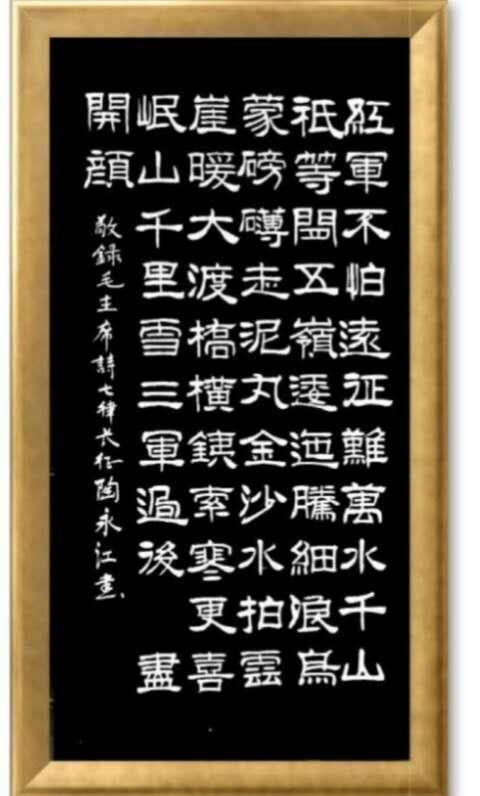 紅軍不怕遠征難萬水千山
祇等閒五嶺逶迤騰細浪烏
蒙磅礡走泥丸金沙水拍雲
崖暖大渡橋橫銕索寒更喜
岷山千里雪三軍過後盡
開顏
敬錄毛主席詩七律长征陶永江書